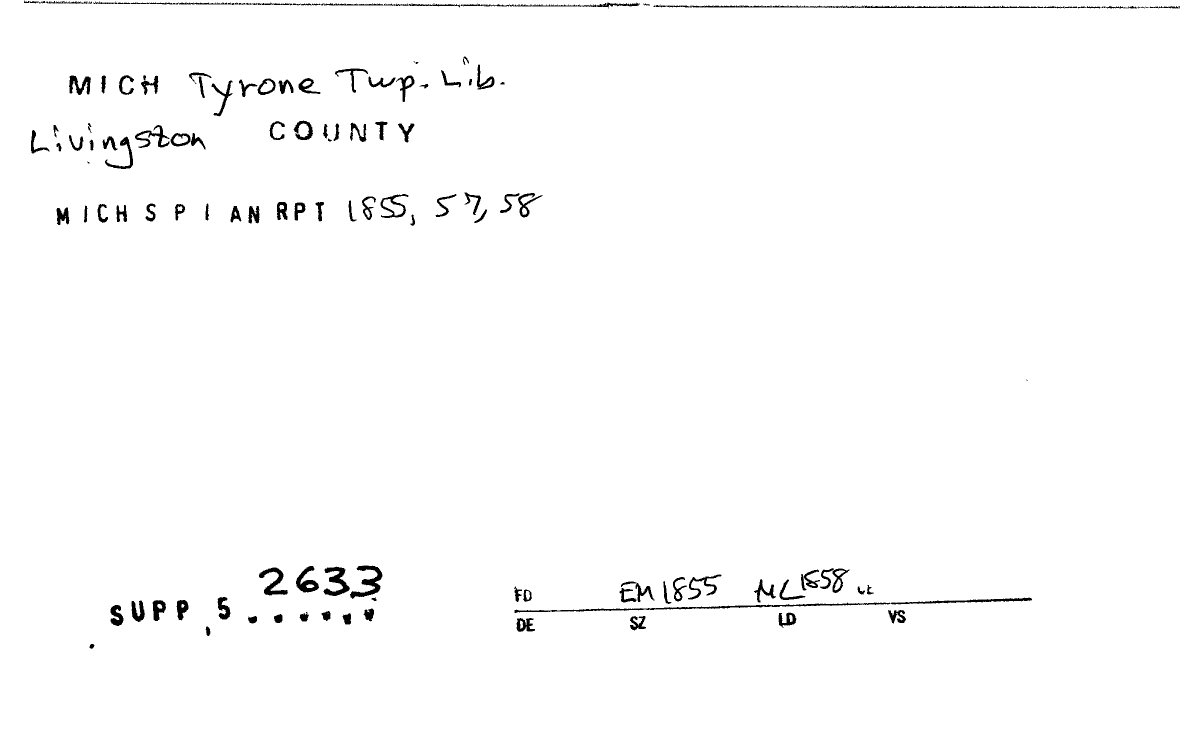 MICH Tyrone Twp. Lib.
Livingston COUNTY
MICH S P I AN RPT 1855, 57, 58
2633
SUPP, 5......
FD EM 1855 ML 1858
DE SZ LD VS